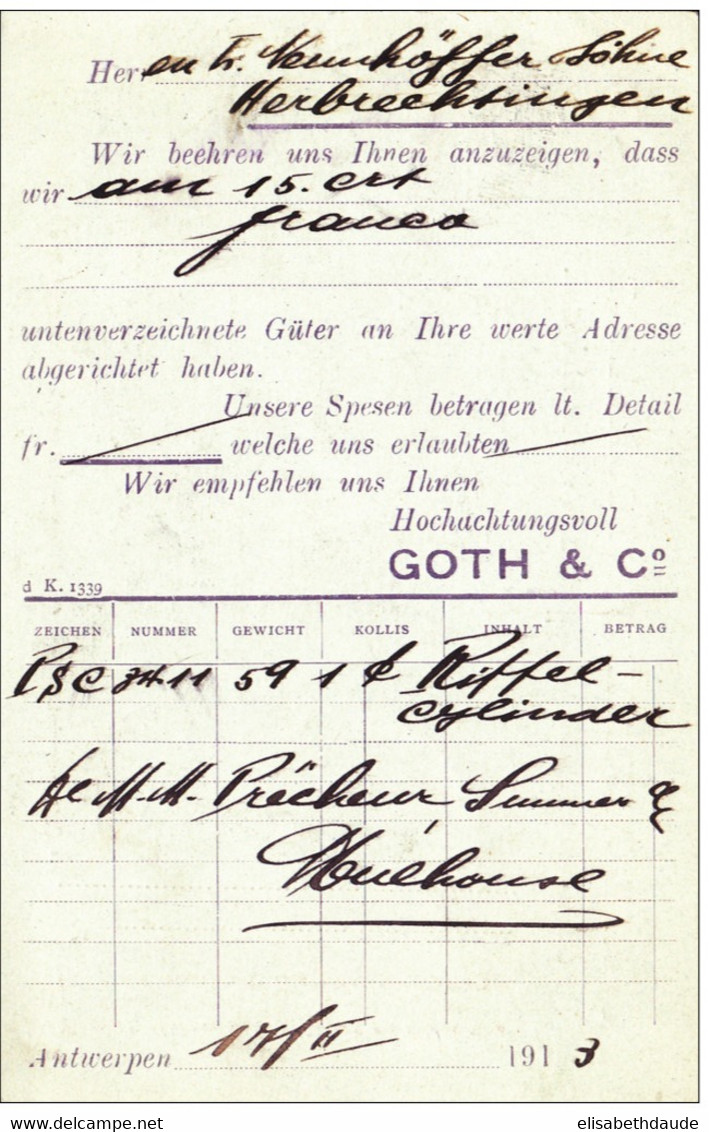 Herren Fr. Neunhöffer Söhne
Herbrechtingen
Wir beehren uns Ihnen anzuzeigen, dass
wir am 15. crt
franco
untenverzeichnete Güter an Ihre werte Adresse
abgerichtet haben.
Unsere Spesen betragen lt. Detail
fr. welche uns erlaubten
Wir empfehlen uns Ihnen
Hochachtungsvoll
GOTH & Cº
d K. 1339
ZEICHEN NUMMER GEWICHT KOLLIS INHALT BETRAG
PSC 3411 59 1 Riffel-
cylinder
M.M. Prêcheur
Mulhouse
Antwerpen 17/II 1913
delcampe.net
elisabethdaude